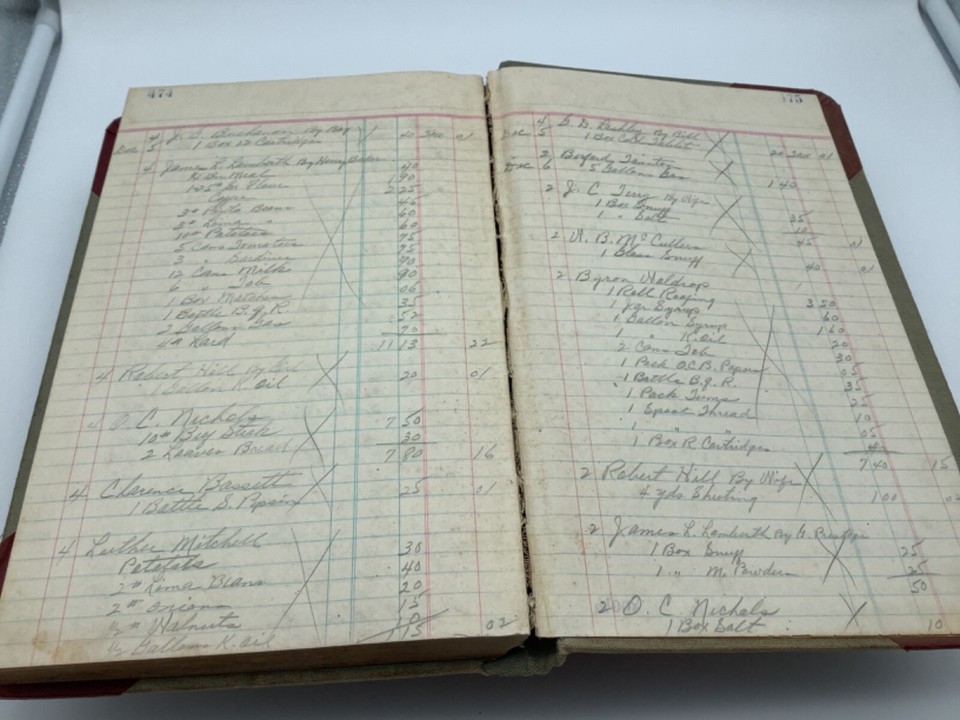 474
4 J. C. Buchanan By Boy
Dec 5 1 Box 12 Cartridges 01
4 James L. Lamberth By Henry
Meal 40
1-25# Flour 1 90
2 25
2# Pinto Beans
2# Lima " 60
10# Potatoes 60
5 Cans Tomatoes 75
3 " Sardines
12 Cans Milk 90
6 " Tob 90
1 Box Matches 06
1 Bottle B.&R. 35
2 Gallons Gas 52
4# Lard 70
11 13 22
4 Robert Hill By
1 Gallon K. Oil 20 01
4 O. C. Nichols
10# Big Stick 7 50
2 Loaves Bread 30
7 80 16
4 Clarence Bassett
1 Bottle S. Pepsin 25 01
4 Luther Mitchell
Potatoes 30
2# Lima Beans 40
2# Onions 20
1/2# Walnuts 15
1/2 Gallons K. Oil 02
175
4 G. D. By Bill
Dec 5 1 Box 20 01
2 Buford
Dec 6 5 Gallons Gas 1 40
2 J. C. Terry By Wife
1 Box Snuff 35
1 " Salt 10
45
2 W. B. McCullers
1 Glass Snuff 40 01
2 Byron Waldrop
1 Roll Roofing 3 50
1 Jar Syrup 60
1 Gallon Syrup 1 60
1 " K. Oil 20
2 Cans Tob 30
1 Pack O.C.B. Papers 05
1 Bottle B.&R. 35
1 Pack Tums 25
1 Spool Thread 10
1 " " 05
1 Box R. Cartridges
7 40 15
2 Robert Hill By Wife
4 yds Sheeting 1 00 02
2 James L. Lamberth By G.
1 Box Snuff 25
1 " M. Powders 25
50
2 O. C. Nichols
1 Box Salt 10